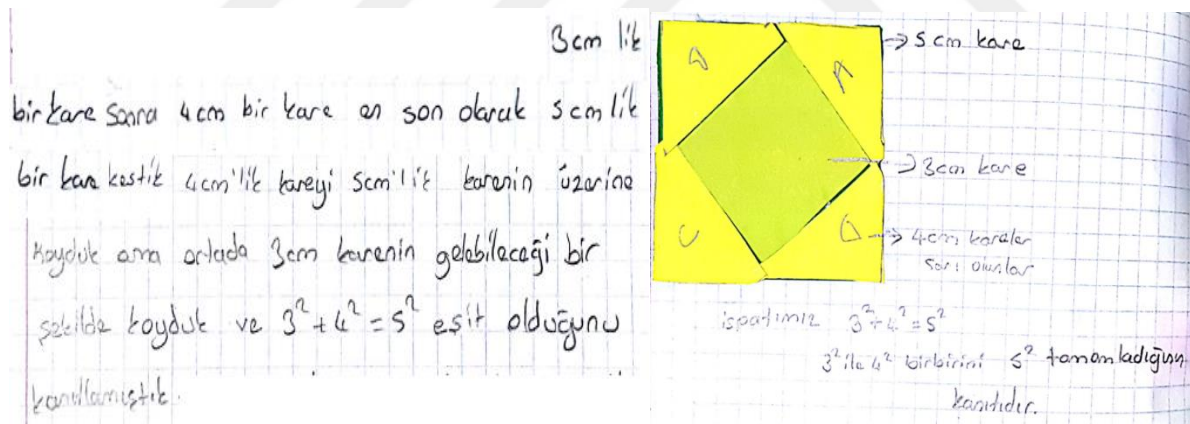 3cm lik
bir kare sonra 4cm bir kare en son olarak 5cmlik
bir kare kestik 4cm'lik kareyi 5cm'lik karenin üzerine
koyduk ama ortada 3cm karenin gelebileceği bir
şekilde koyduk ve 3²+4²=5² eşit olduğunu
kanıtlamıştık.
D
A
C
→ 5cm kare
→ 3cm kare
→ 4cm kareler
sarı olanlar
ispatımız 3²+4²=5²
3² ile 4² birbirini 5² tamamladığının
kanıtıdır.